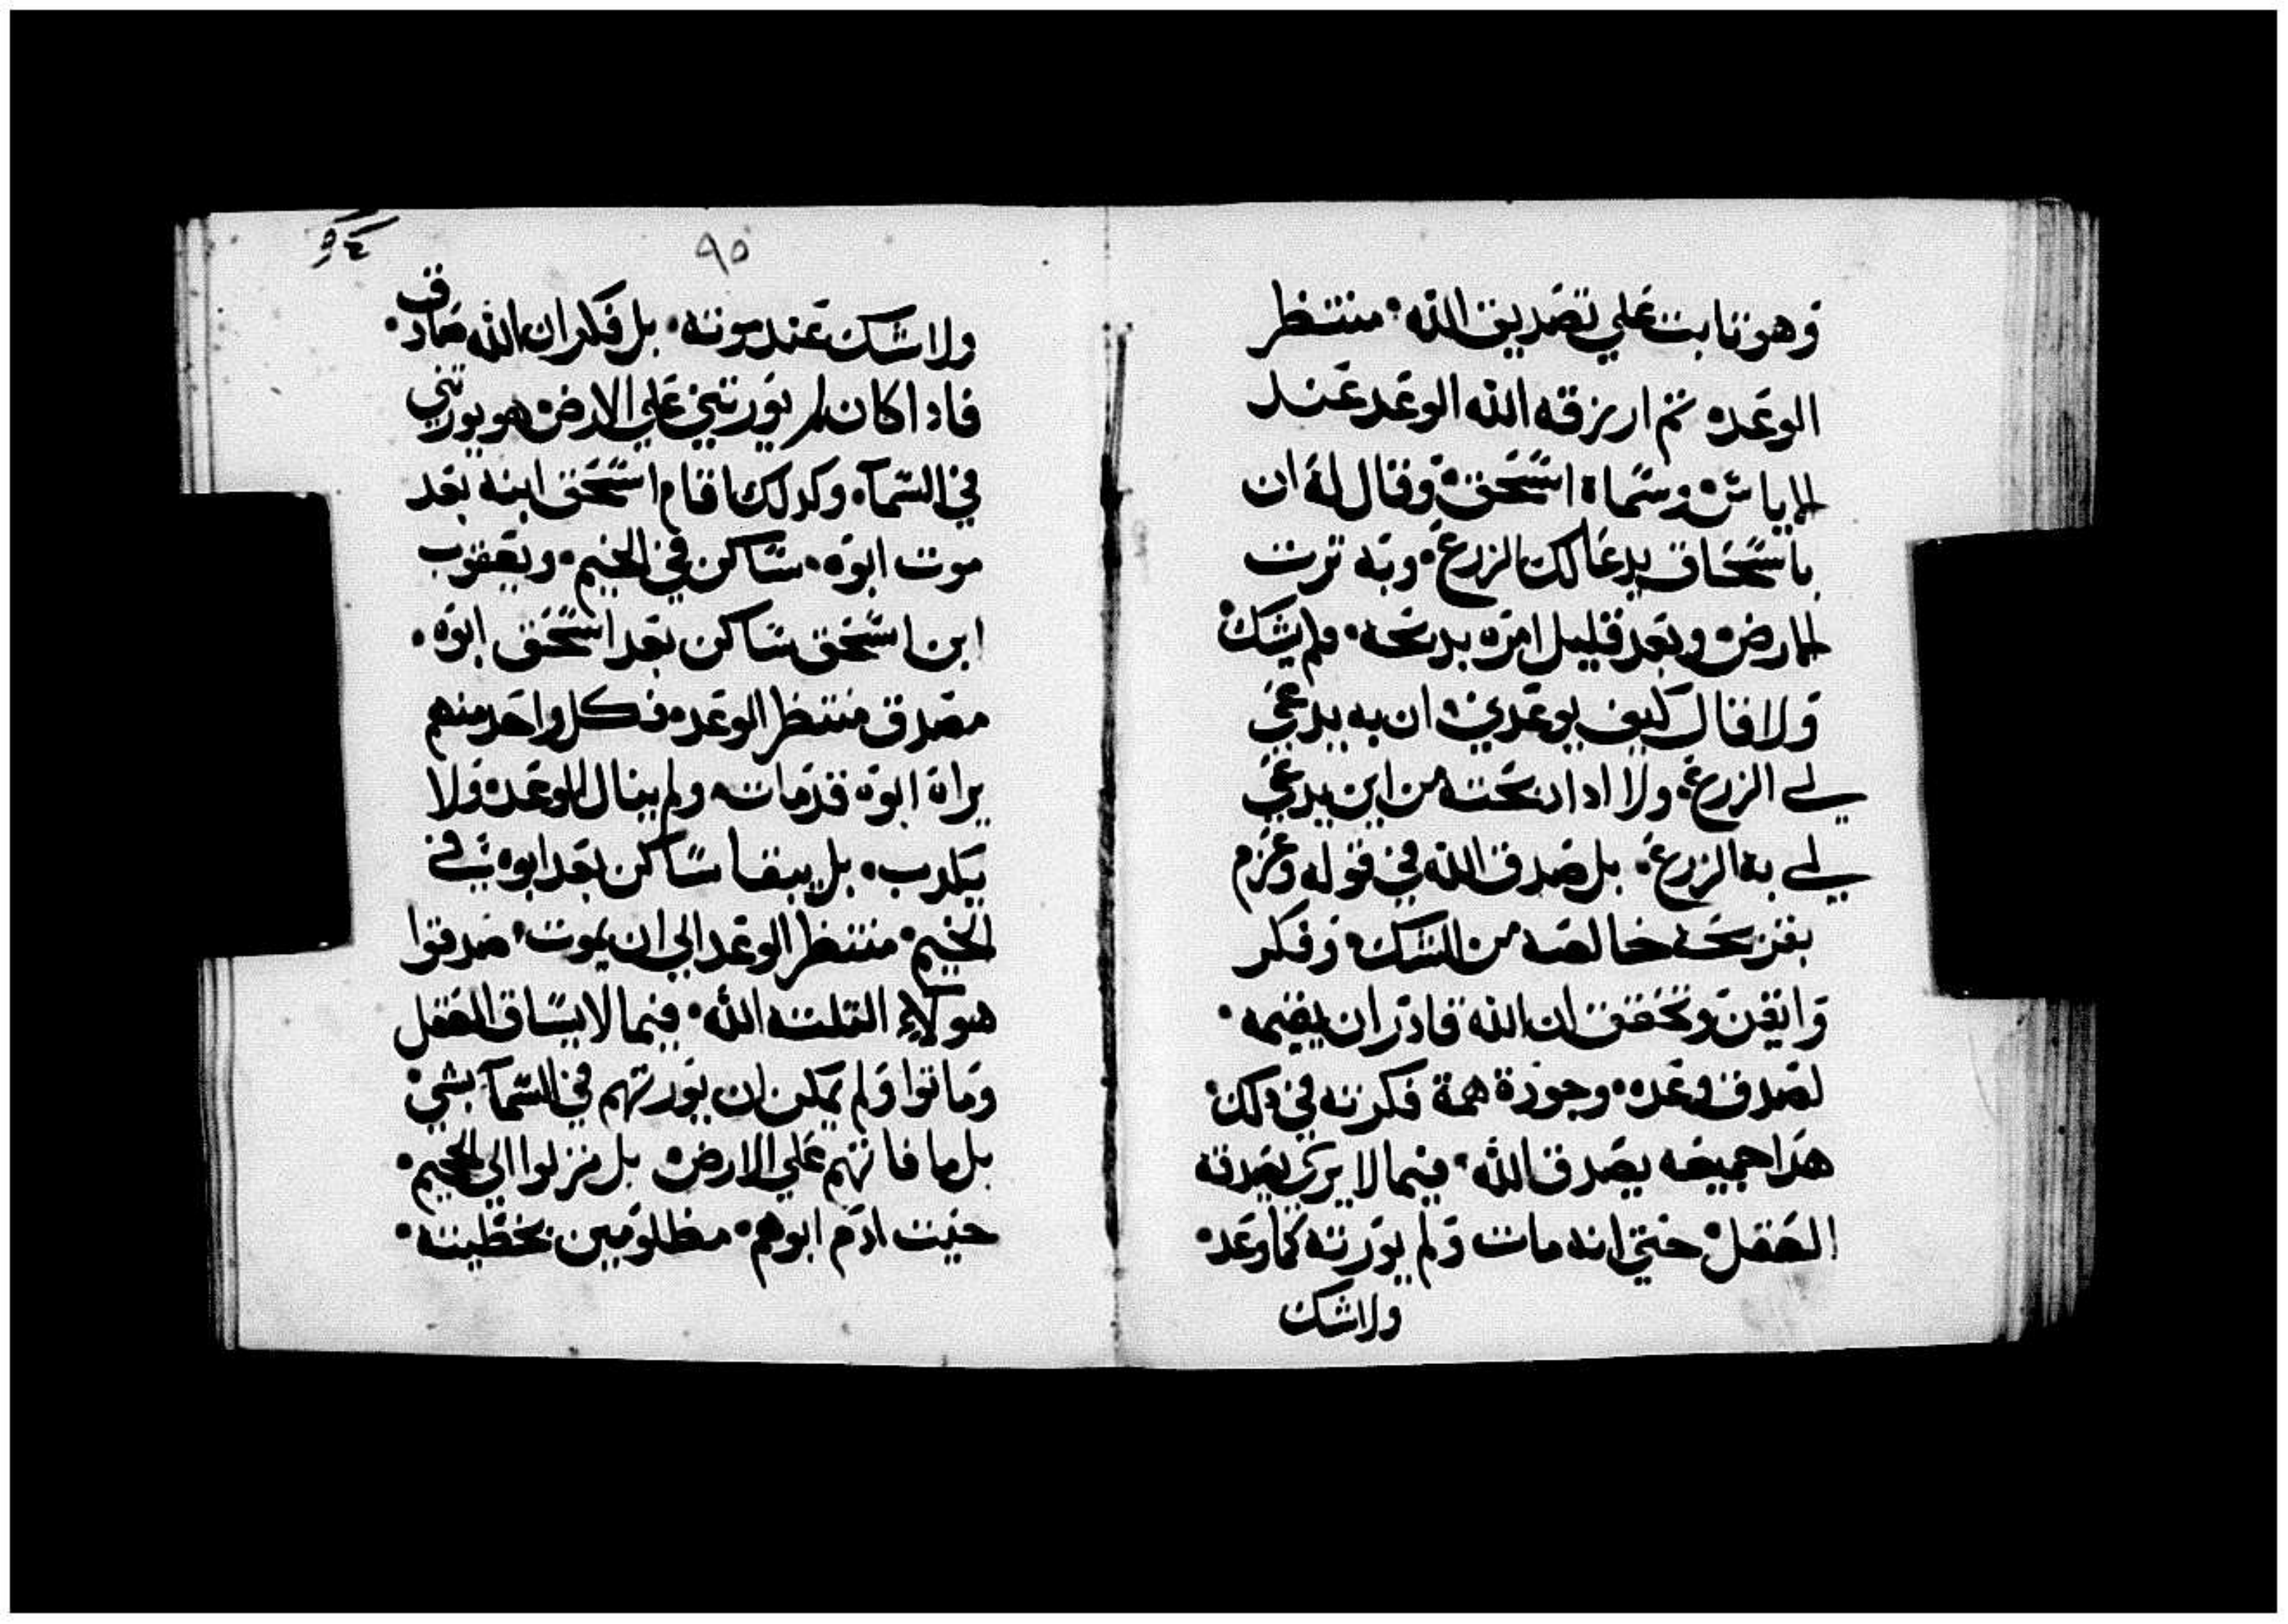 وهو تابت علي تصديق الله منتظر
الوعد ثم ان رزقه الله الوعد عند
الاياس وسماه اسحق وقال له ان
باسحاق يدعا لك الزرع وبه ترت
الارض وبعد قليل امره بدبحه ولم يشك
ولا قال كيف يوعدني ان به يدعي
لي الزرع ولا ادا دبحته من اين يدعي
لي به الزرع بل صدق الله في قوله وعزم
بقريحه خالصه من الشك وفكر
وايقن وتحقق ان الله قادر ان يقيمه
لصدق وعده وجودة همة فكرته في دلك
هدا جميعه يصدق الله فيما لا يري يصدقه
العقل حتي انه مات ولم يورته كما وعد
ولاشك
٩٥
٩٤
ولا شك عند موته بل فكر ان الله صادق
فادا كان لم يورتني علي الارض هو يورتني
في السماء وكدلك اقام اسحق ابنه بعد
موت ابوه ساكن في الخيم ويعقوب
ابن اسحق ساكن بعد اسحق ابوه
مصدق منتظر الوعد فكل واحد منهم
يراه ابوه قد مات ولم ينال الوعد ولا
يكدب بل يبقا ساكن بعد ابوه في
الخيم منتظر الوعد الي ان يموت صدقوا
هولاء التلته الله فيما لا يساق العقل
وماتوا ولم يمكن ان يورتهم في السما بشي
بل ما فاتهم علي الارض بل نزلوا الي الجحيم
حيت ادم ابوهم مظلومين بخطيته